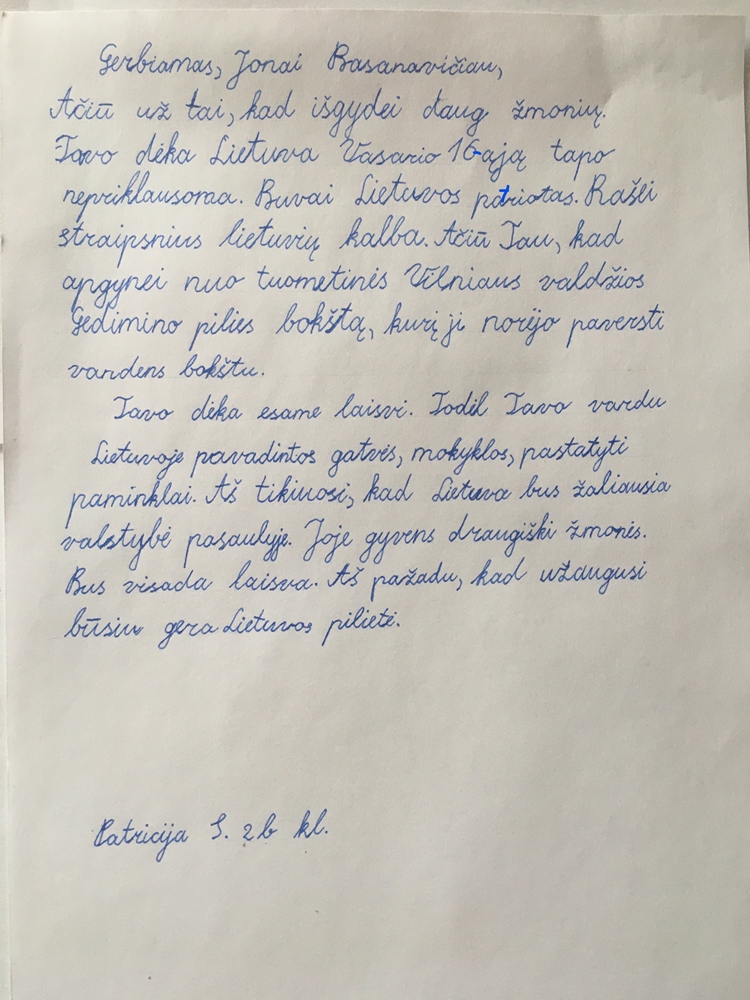 Gerbiamas, Jonai Basanavičiau,
Ačiū už tai, kad išgydei daug žmonių.
Tavo dėka Lietuva Vasario 16-ąją tapo
nepriklausoma. Buvai Lietuvos patriotas. Rašei
straipsnius lietuvių kalba. Ačiū Tau, kad
apgynei nuo tuometinės Vilniaus valdžios
Gedimino pilies bokštą, kurį ji norėjo paversti
vandens bokštu.
Tavo dėka esame laisvi. Todėl Tavo vardu
Lietuvoje pavadintos gatvės, mokyklos, pastatyti
paminklai. Aš tikiuosi, kad Lietuva bus žaliausia
valstybė pasaulyje. Joje gyvens draugiški žmonės.
Bus visada laisva. Aš pažadu, kad užaugusi
būsiu gera Lietuvos pilietė.
Patricija S. 2b kl.